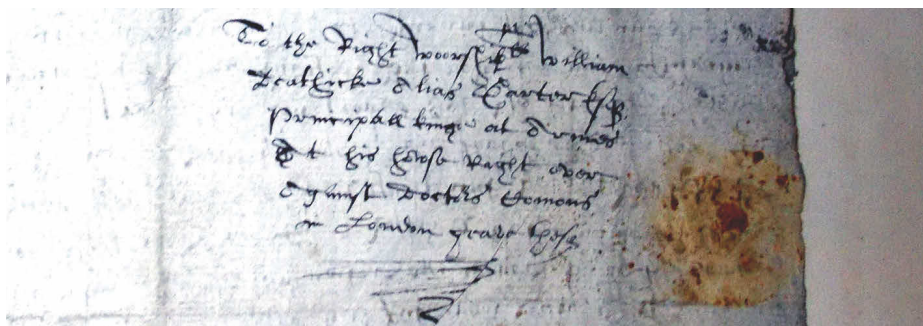 To the Right woorshipll William
Deathicke Alias Garter Esqr
Principall kinge at Armes
At his howse Right over
Against doctors Comons
in London geave thes